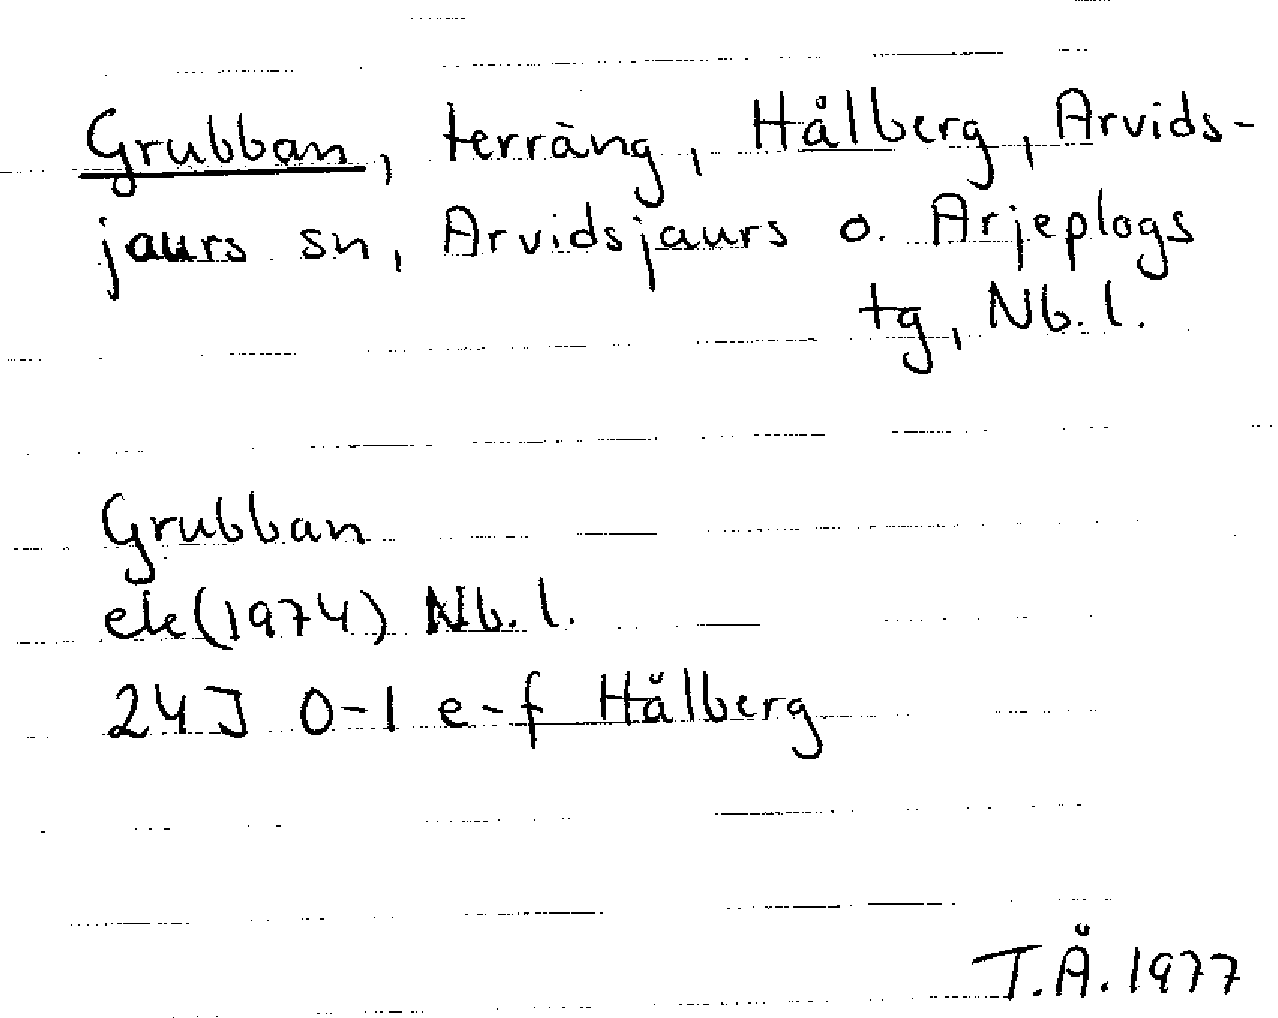 Grubban, terräng, Hålberg, Arvids-
jaurs sn, Arvidsjaurs o. Arjeplogs
tg, Nb. l.
Grubban
ek (1974) Nb. l.
24J 0-1 e-f Hålberg
T.Å. 1977